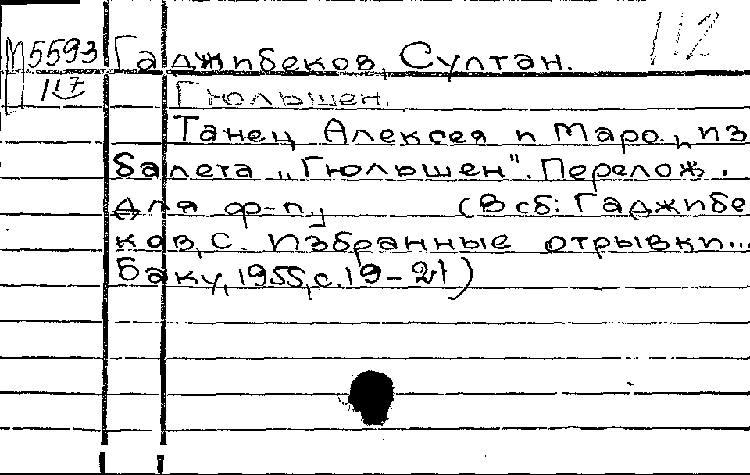 112
М5593 Гаджибеков, Султан.
117 Гюльшен.
Танец Алексея и Маро, из
балета „Гюльшен". Перелож.
для ф-п.
(В сб: Гаджибе
ков, С. Избранные отрывки...
Баку, 1955, с. 19-21)